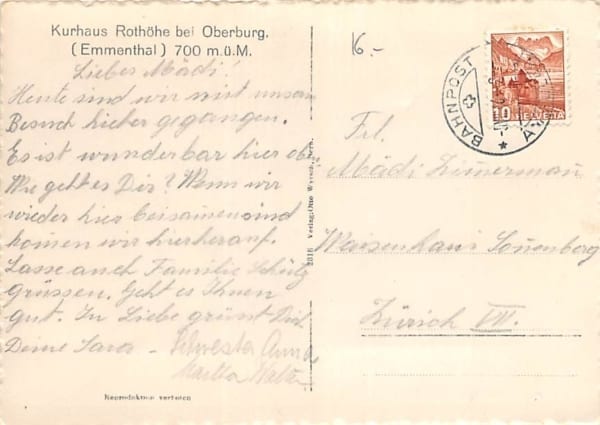 Kurhaus Rothöhe bei Oberburg.
(Emmenthal) 700 m.ü.M.
Liebes Mädi!
Heute sind wir mit unsern
Besuch hieher gegangen.
Es ist wunderbar hier ob
Wie geht es Dir? Wenn wir
wieder hier beisamen sind
kommen wir hierherauf.
Lasse auch Familie Schütz
grüssen. Geht es Ihnen
gut. In Liebe grüsst Dich
Deine Sara - Silvester Anna
Martha Walter
Reproduktion verboten
2816 Verlag: Otto Wyss, Bern.
16.-
BAHNPOST
10 HELVETIA
Frl.
Mädi Zimmerman
Waisenhaus Sonnenberg
Zürich VII.